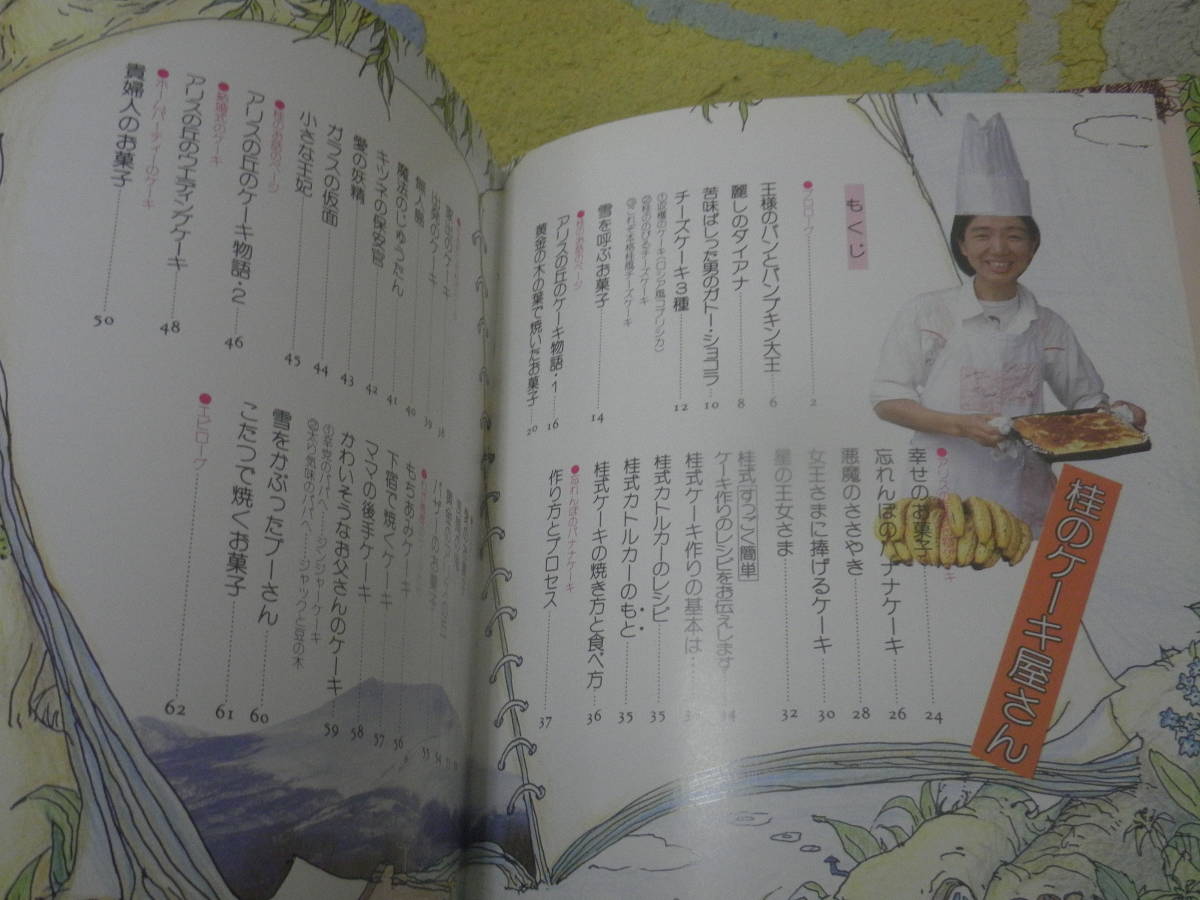 桂のケーキ屋さん
もくじ
●プロローグ 2
王様のパンとパンプキン大王 6
麗しのダイアナ 8
苦味ばしった男のガトー・ショコラ 10
チーズケーキ3種 12
雪を呼ぶお菓子 14
●桂のお話のページ
アリスの丘のケーキ物語・1 16
黄金の木の葉で焼いたお菓子 20
幸せのお菓子 24
忘れんぼのバナナケーキ 26
悪魔のささやき 28
女王さまに捧げるケーキ 30
星の王女さま 32
桂式すっごく簡単
ケーキ作りのレシピをお伝えします 34
桂式ケーキ作りの基本は…
桂式カトルカーのレシピ 35
桂式カトルカーのもと 35
桂式ケーキの焼き方と食べ方 36
●忘れんぼのバナナケーキ
作り方とプロセス 37
38
出発のケーキ 39
40
魔法のじゅうたん 41
キツネの保安官 42
愛の妖精 43
ガラスの仮面 44
小さな王妃 45
●桂のお話のページ
アリスの丘のケーキ物語・2 46
●結婚式のケーキ
アリスの丘のウエディングケーキ 48
●ホームパーティーのケーキ
貴婦人のお菓子 50
バザーのお菓子 55
もちあみケーキ 56
下宿で焼くケーキ 57
ママの後手ケーキ 58
かわいそうなお父さんのケーキ 59
①辛党のパパへ……ジンジャーケーキ
②太り気味のパパへ……ジャックと豆の木
雪をかぶったプーさん 60
こたつで焼くお菓子 61
●エピローグ 62